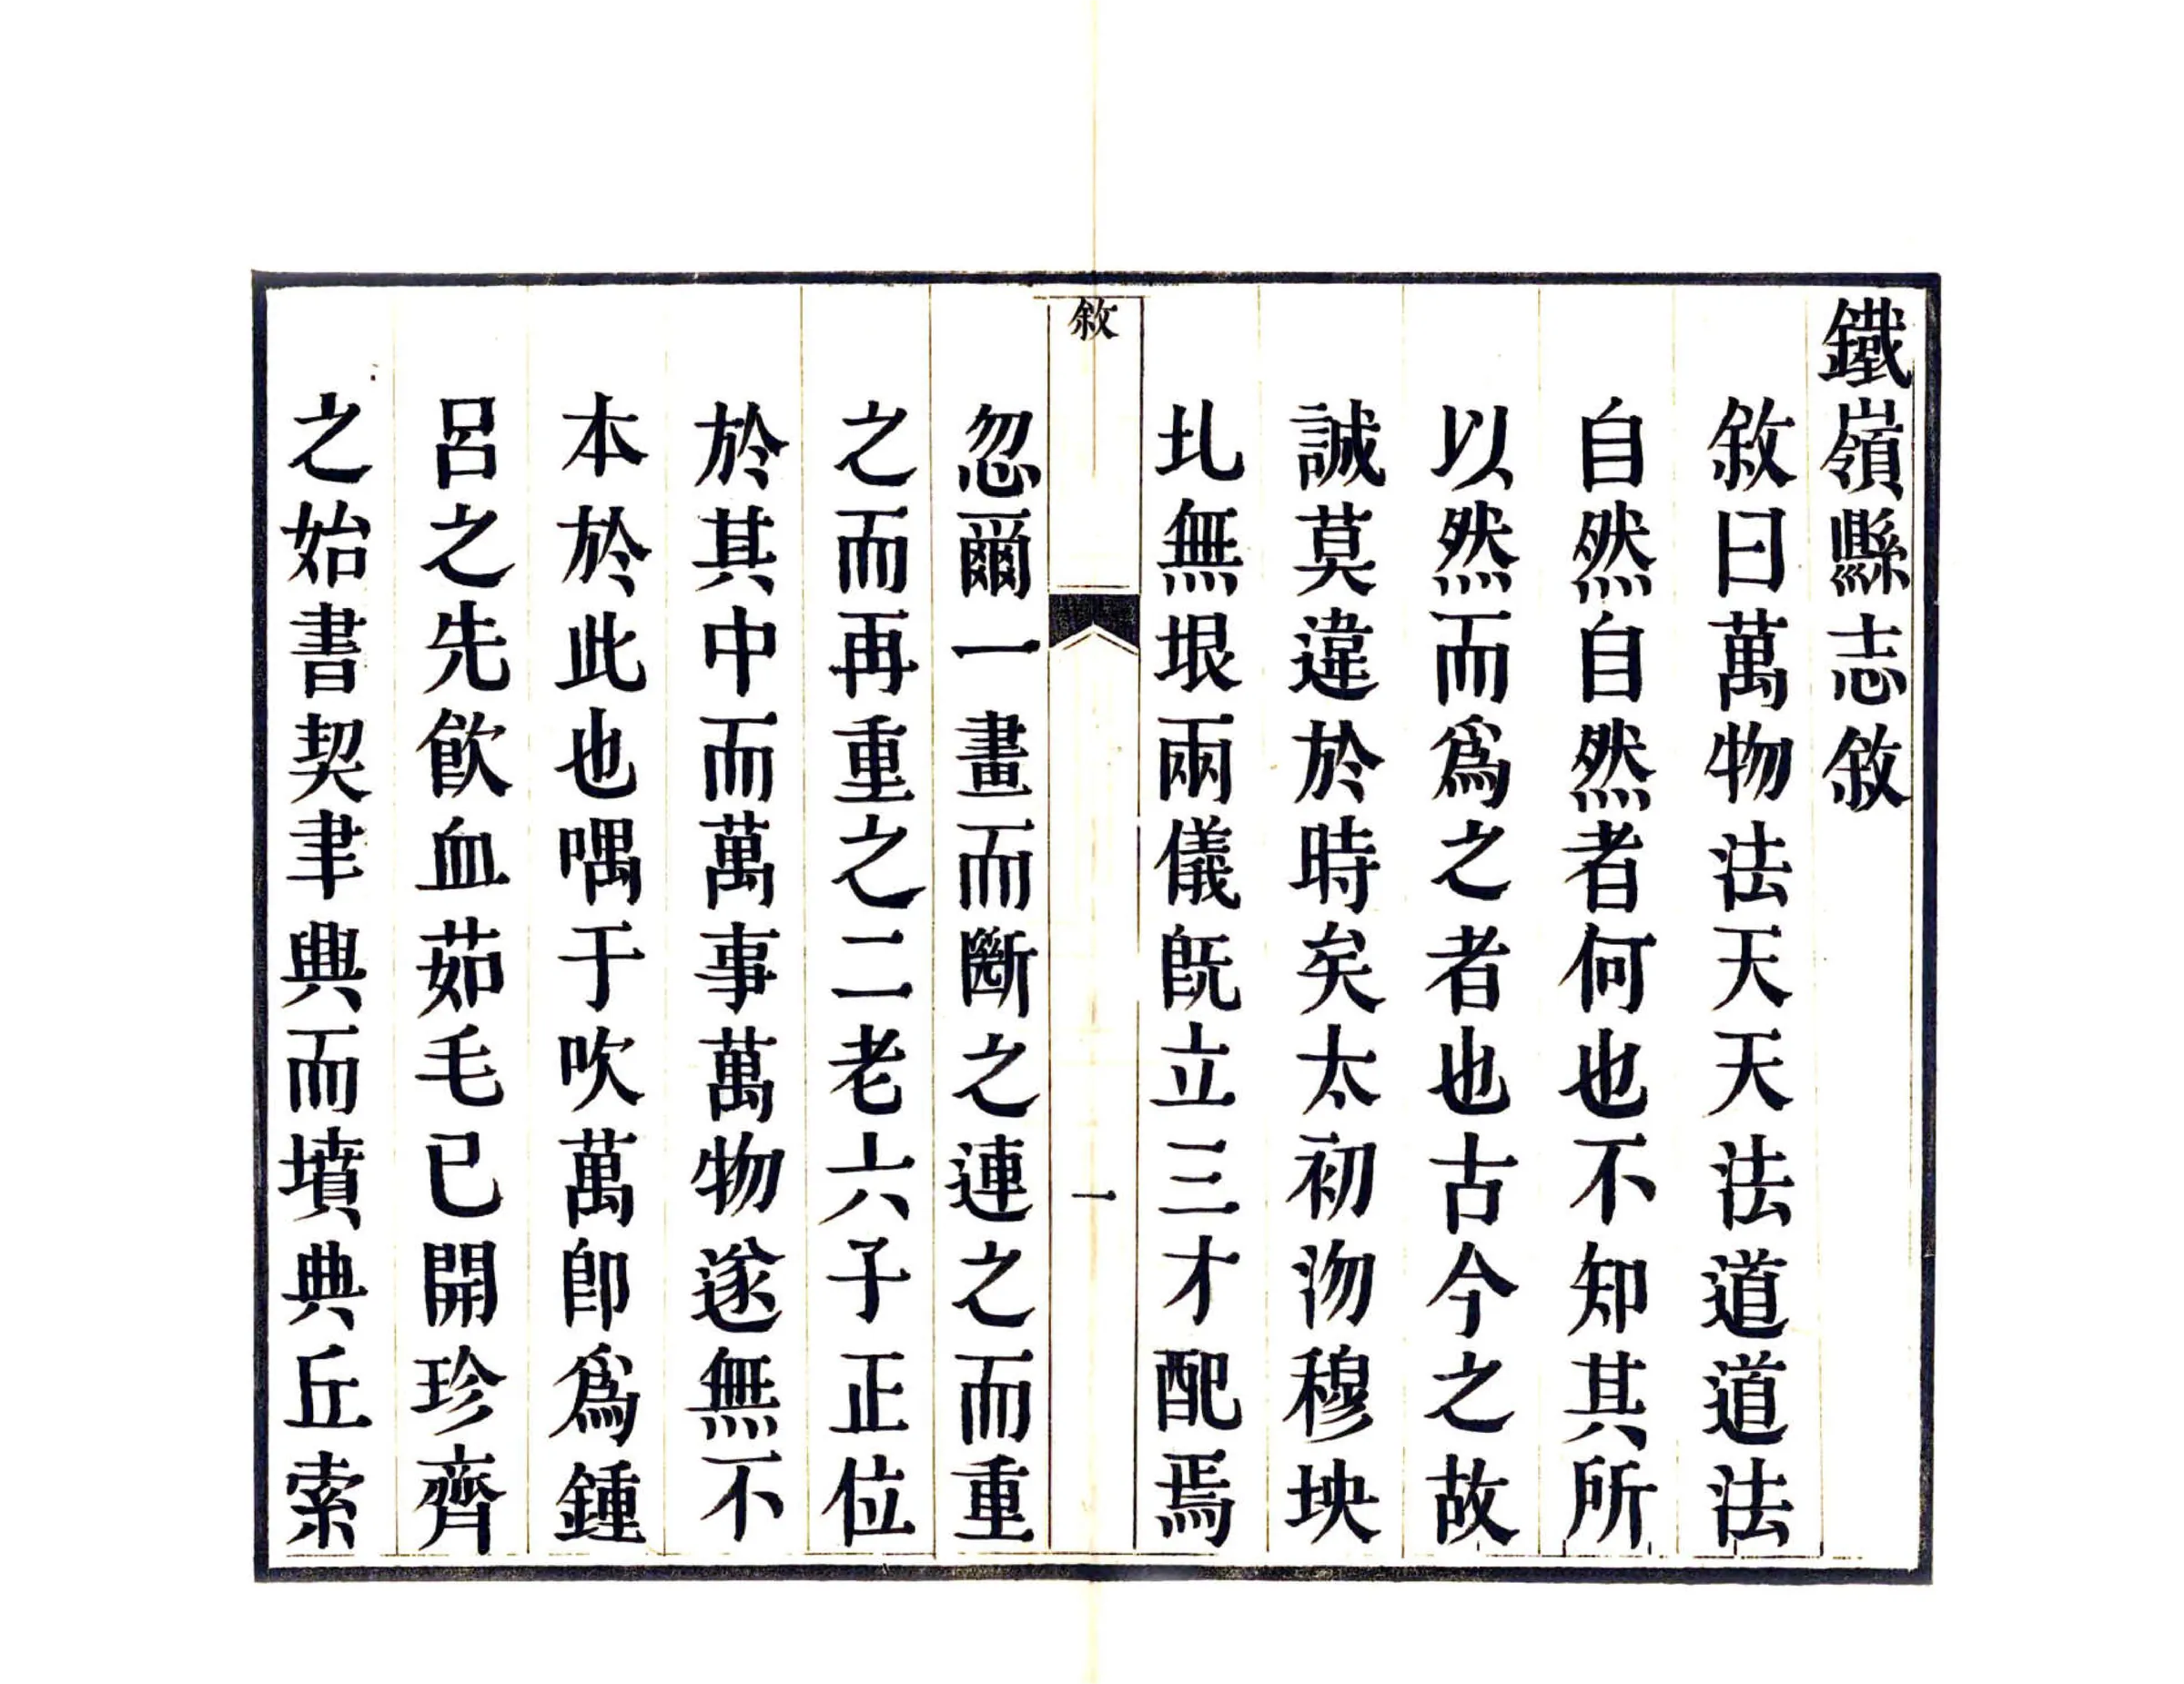 鐵嶺縣志敘
敘曰萬物法天天法道道法
自然自然者何也不知其所
以然而爲之者也古今之故
誠莫違於時矣太初沕穆坱
圠無垠兩儀旣立三才配焉
敘
一
忽爾一畫而斷之連之而重
之而再重之二老六子正位
於其中而萬事萬物遂無不
本於此也喁于吹萬卽爲鍾
呂之先飮血茹毛已開珍齊
之始書契聿興而墳典丘索